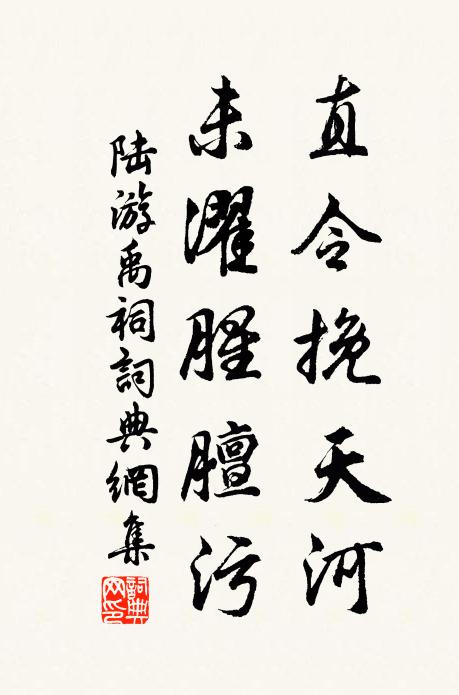 直令挽天河
未濯腥膻污
陆游禹祠詞典網集
詞典网印